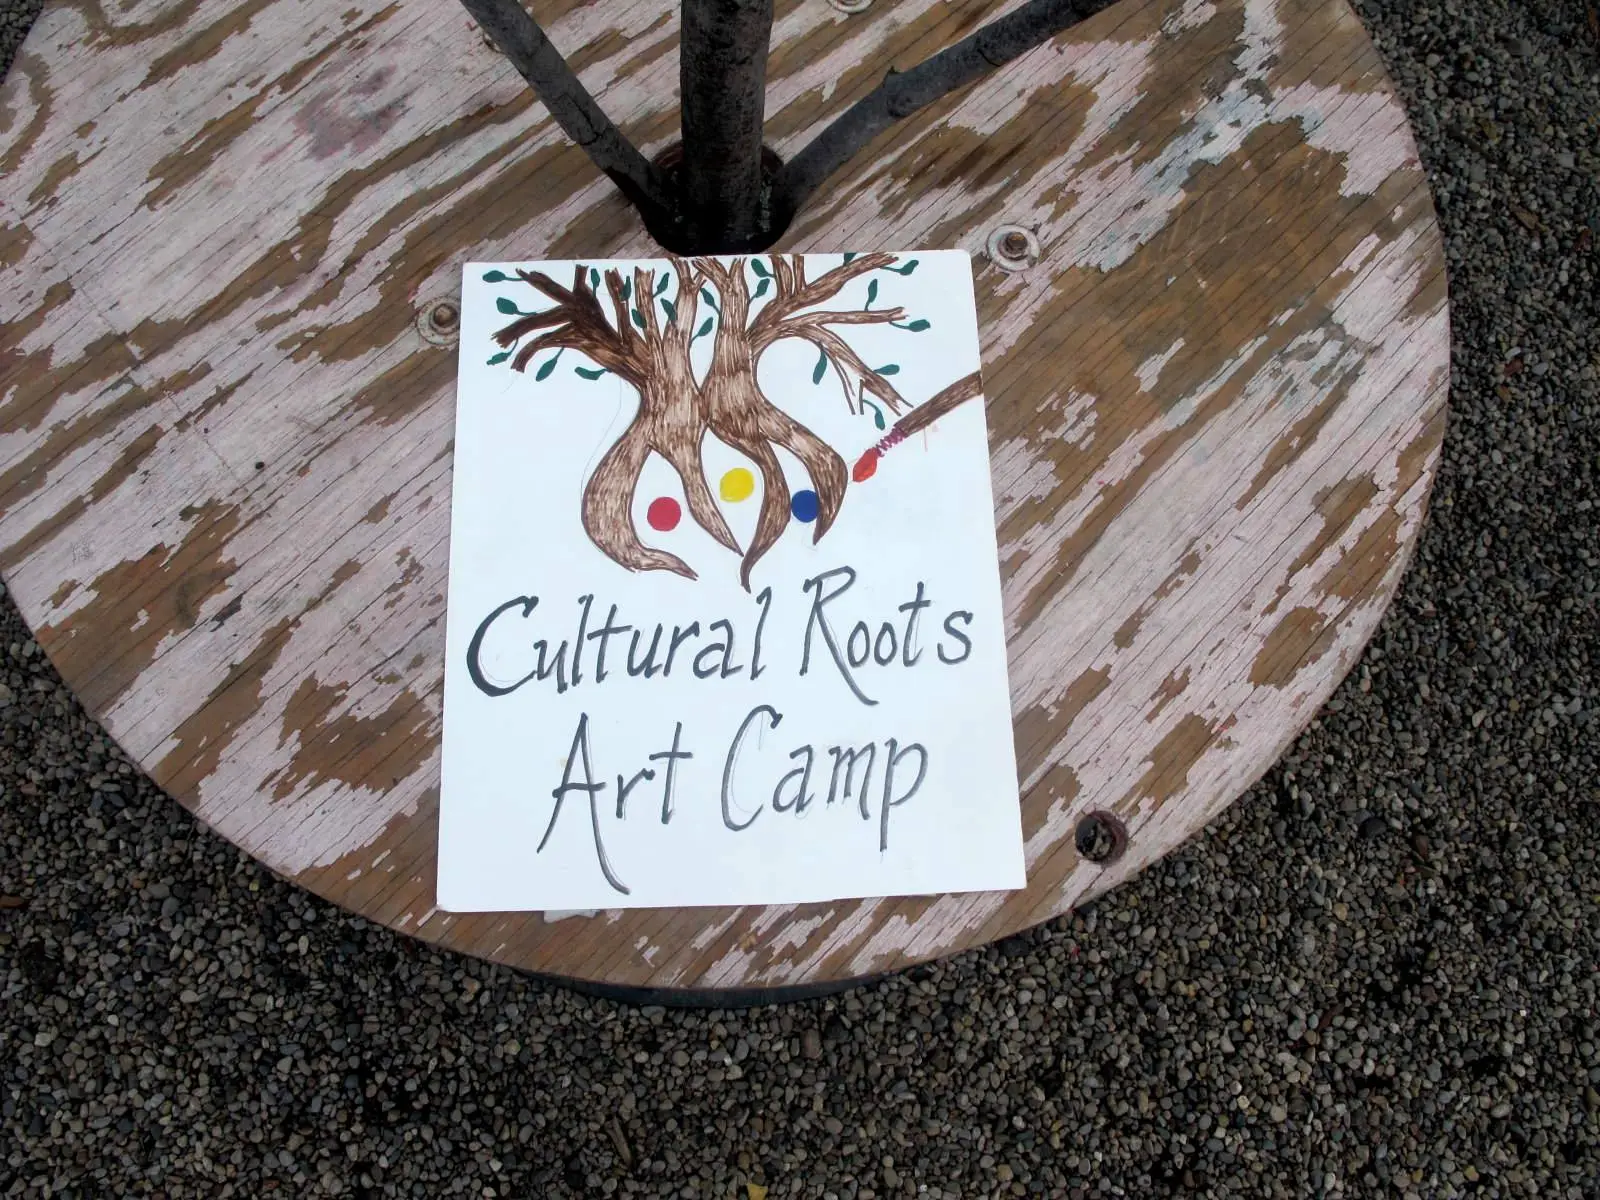 Cultural Roots
Art Camp